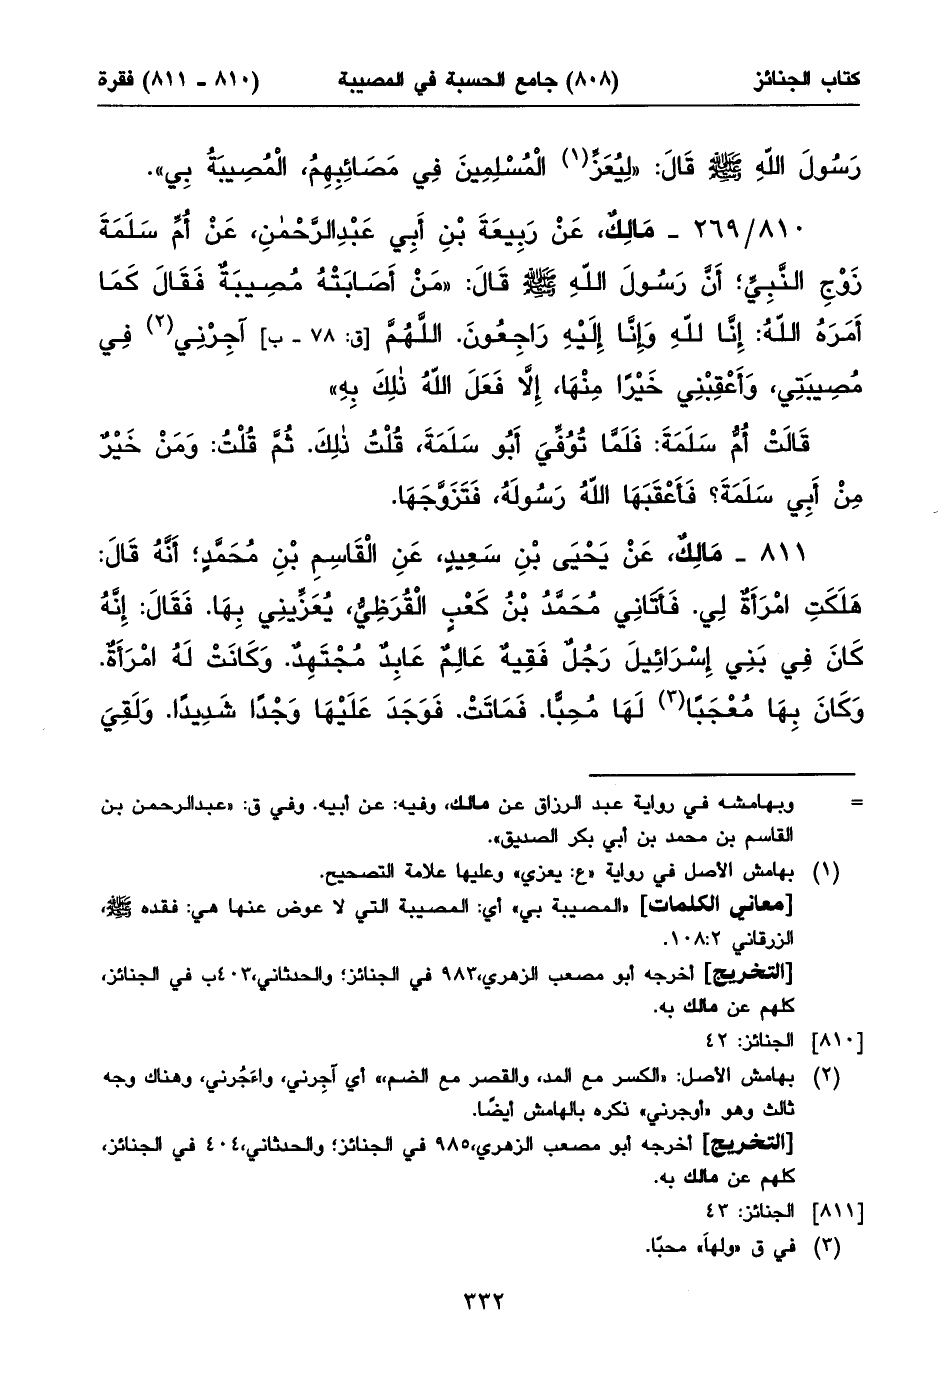 كتاب الجنائز (٨٠٨) جامع الحسبة في المصيبة (٨١٠ - ٨١١) فقرة
رَسُولَ اللّهِ ﷺ قَالَ: «لِيُعَزِّ(١) الْمُسْلِمِينَ فِي مَصَائِبِهِمُ، الْمُصِيبَةُ بِي».
٢٦٩/٨١٠ - مَالِكٌ، عَنْ رَبِيعَةَ بْنِ أَبِي عَبْدِالرَّحْمٰنِ، عَنْ أُمِّ سَلَمَةَ
زَوْجِ النَّبِيِّ؛ أَنَّ رَسُولَ اللهِ ﷺ قَالَ: «مَنْ أَصَابَتْهُ مُصِيبَةٌ فَقَالَ كَمَا
أَمَرَهُ اللّهُ: إِنَّا للهِ وَإِنَّا إِلَيْهِ رَاجِعُونَ. اللَّهُمَّ [ق: ٧٨ - ب] آجِرْنِي(٢) فِي
مُصِيبَتِي، وَأَعْقِبْنِي خَيْرًا مِنْهَا، إِلَّا فَعَلَ اللّهُ ذٰلِكَ بِهِ»
قَالَتْ أُمُّ سَلَمَةَ: فَلَمَّا تُوُفِّيَ أَبُو سَلَمَةَ، قُلْتُ ذٰلِكَ. ثُمَّ قُلْتُ: وَمَنْ خَيْرٌ
مِنْ أَبِي سَلَمَةَ؟ فَأَعْقَبَهَا اللّهُ رَسُولَهُ، فَتَزَوَّجَهَا.
٨١١ - مَالِكٌ، عَنْ يَحْيَى بْنِ سَعِيدٍ، عَنِ الْقَاسِمِ بْنِ مُحَمَّدٍ؛ أَنَّهُ قَالَ:
هَلَكَتِ امْرَأَةٌ لِي. فَأَتَانِي مُحَمَّدُ بْنُ كَعْبٍ الْقُرَظِيُّ، يُعَزِّينِي بِهَا. فَقَالَ: إِنَّهُ
كَانَ فِي بَنِي إِسْرَائِيلَ رَجُلٌ فَقِيهٌ عَالِمٌ عَابِدٌ مُجْتَهِدٌ. وَكَانَتْ لَهُ امْرَأَةٌ.
وَكَانَ بِهَا مُعْجَبًا(٣) لَهَا مُحِبًّا. فَمَاتَتْ. فَوَجَدَ عَلَيْهَا وَجْدًا شَدِيدًا. وَلَقِيَ
= وبهامشه في رواية عبد الرزاق عن مالك، وفيه: عن أبيه. وفي ق: «عبدالرحمن بن
القاسم بن محمد بن أبي بكر الصديق».
(١) بهامش الأصل في رواية «ع: يعزي» وعليها علامة التصحيح.
[معاني الكلمات] «المصيبة بي» أي: المصيبة التي لا عوض عنها هي: فقده ﷺ،
الزرقاني ١٠٨:٢.
[التخريج] أخرجه أبو مصعب الزهري،٩٨٣ في الجنائز؛ والحدثاني،٤٠٣ب في الجنائز،
كلهم عن مالك به.
[٨١٠] الجنائز: ٤٢
(٢) بهامش الأصل: «الكسر مع المد، والقصر مع الضم،» أي آجِرني، واءجُرني، وهناك وجه
ثالث وهو «أوجرني» نكره بالهامش أيضًا.
[التخريج] أخرجه أبو مصعب الزهري،٩٨٥ في الجنائز؛ والحدثاني،٤٠٤ في الجنائز،
كلهم عن مالك به.
[٨١١] الجنائز: ٤٣
(٣) في ق «ولهاَ» محبًا.
٣٣٢